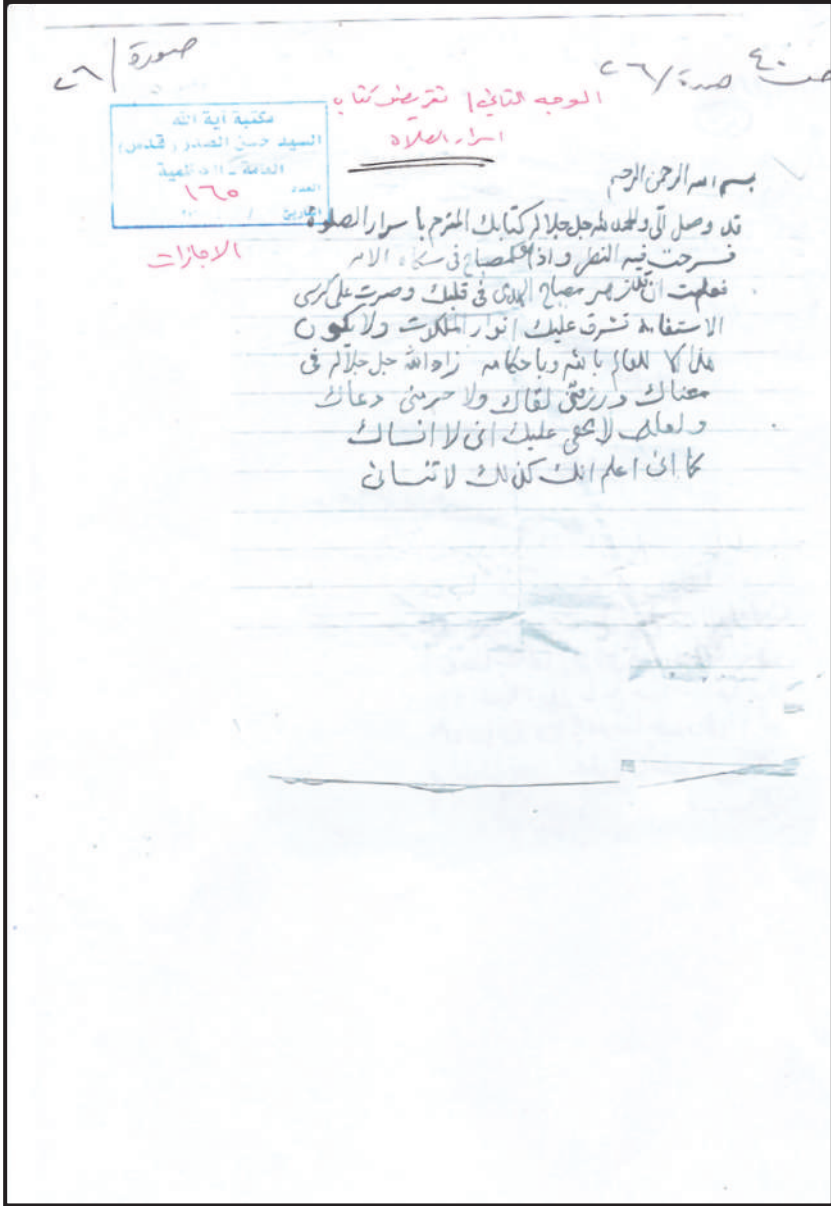 صورة / ٢٦
صورة / ٢٦
الوجه الثاني / تقريض كتاب
اسرار الصلاة
مكتبة آية الله
السيد حسن الصدر (قدس)
العامة - الكاظمية
العدد ١٦٥
التاريخ / /
الاجازات
بسم الله الرحمن الرحيم
قد وصل الي ولله الحمد جل جلاله كتابك المترجم باسرار الصلوة
فسرحت فيه النظر واذا كمصباح في سماء الامر
فعلمت ان مصباح الهدى في قلبك وصرت على كرسي
الاستفامة تشرق عليك انوار الملكوت ولا يكون
هذا الا للعالم بالله وباحكامه زاد الله جل جلاله في
معناك ورزقني لقاك ولا حرمني دعاك
ولعله لا يخفى عليك اني لا انساك
كما اني اعلم انك كذلك لا تنساني